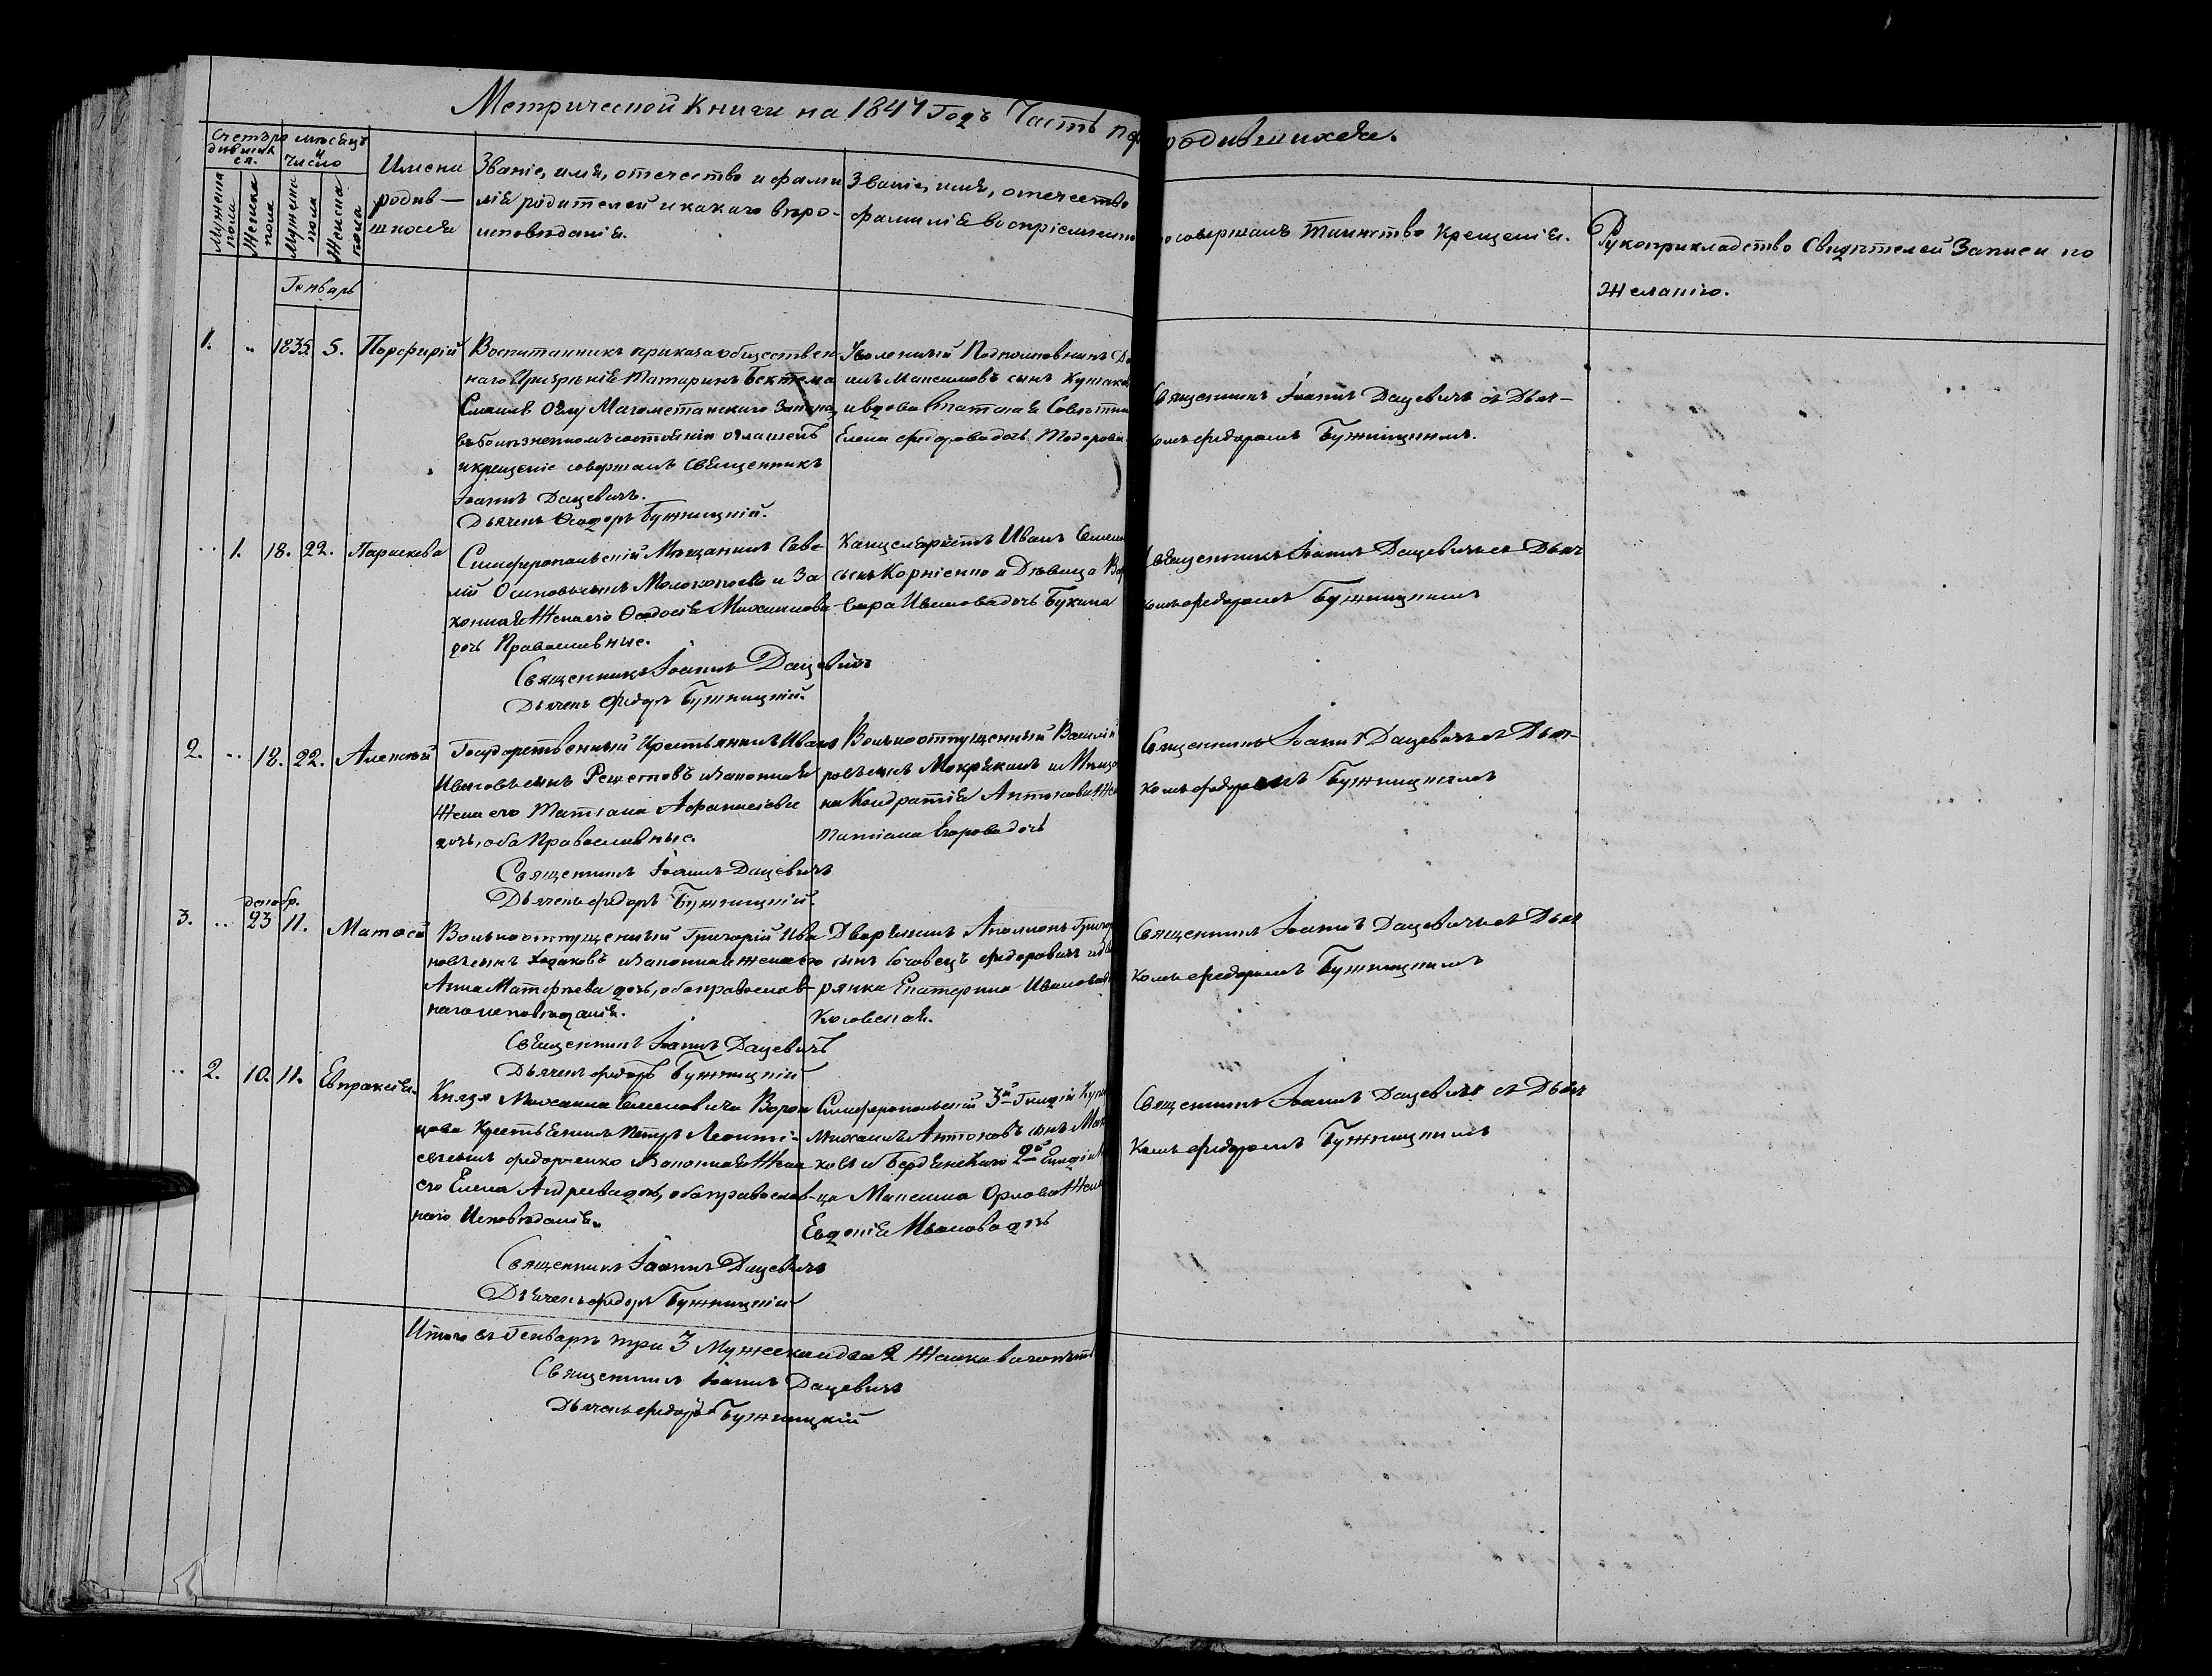 Метрической Книги на 1847 Годъ Часть пер
родившихся.
Счетъ ро
дивших
ся.
мѣсяцъ
и
число
Мужеска
пола
Женска
пола
Мужеска
пола
Женска
пола
Имена
родив—
шихся
Званіе, имя, отечество и фами
лія родителей и какого вѣро-
исповѣданія.
Званіе, имя, отечество
фамилія воспріемник
совершалъ Таинство Крещенія.
Рукоприкладство Свидѣтелей Записи по
желанію.
Генварь
1. „ 1835. 5. Порфирій
Воспитанникъ приказа обществен
наго Призрѣнія Татаринъ
Магометанскаго Закона
въ болѣзненномъ состояніи
и крещеніе совершалъ Священникъ
Іоаннъ Дацевичъ.
Дьячекъ Ѳеодоръ Бужницкій.
Уволенный Подполковникъ
Максимовъ сынъ
и вдова Статская Совѣтни
Елена Федорова дочь Тодорова
Священникъ Іоаннъ Дацевичъ съ Дьяч—
комъ Федоромъ Бужницкимъ.
.. 1. 18. 22. Параскева
Симферопольскій Мѣщанинъ Саве
лій Осиповъ сынъ и За
конная Жена его Ѳеодосія Михаилова
дочь Православные.
Священникъ Іоаннъ Дацевичъ
Дьячекъ Федоръ Бужницкій.
Канцеляристъ Иванъ Семен
сынъ Корніенко и Дѣвица Вар
вара Иванова дочь Букина
Священникъ Іоаннъ Дацевичъ съ Дьяч
комъ Федоромъ Бужницкимъ
2. .. 18. 22. Алексѣй
Государственный Крестьянинъ Иванъ
Ивановъ сынъ Решетовъ и законная
Жена его Татіана Афанасіева
дочь, оба Православные.
Священникъ Іоаннъ Дацевичъ
Дьячекъ Федоръ Бужницкій.
Вольноотпущенный Василій
ровъ сынъ и Мѣща
на Кондратія Антонова Же
Татіана Егорова дочь
Священникъ Іоаннъ Дацевичъ съ Дьяч-
комъ Федоромъ Бужницкимъ
декабр.
3. .. 23 11. Матѳей
Вольноотпущенный Григорій Ива
новъ сынъ Ходаковъ и законная жена его
Анна Матфѣева дочь, оба православ
наго исповѣданія.
Священникъ Іоаннъ Дацевичъ
Дьячекъ Федоръ Бужницкій
Дворянинъ Аполлонъ Григор
сынъ Федоровичъ и Дво
рянка Екатерина Иванова
Косовская.
Священникъ Іоаннъ Дацевичъ съ Дьяч
комъ Федоромъ Бужницкимъ
.. 2. 10. 11. Евпраксія.
Князя Михаила Семеновича Ворон
цова Крестьянинъ Петръ Леонті-
евъ сынъ Федорченко и Законная Жена
его Елена Андреева дочь, оба православ-
наго Исповѣданія.
Священникъ Іоаннъ Дацевичъ
Дьячекъ Федоръ Бужницкій
Симферопольскій 3й Гильдіи Купец
Михаилъ Антоновъ сынъ Мал
ковъ и Бердянскаго 2й Гильдіи Куп
ца Максима Орлова Жена
Евдокія Иванова дочь
Священникъ Іоаннъ Дацевичъ съ Дьяч
комъ Федоромъ Бужницкимъ
Итого въ Генварѣ три 3 Мужеска и два 2 Женска
Священникъ Іоаннъ Дацевичъ
Дьячекъ Федоръ Бужницкій